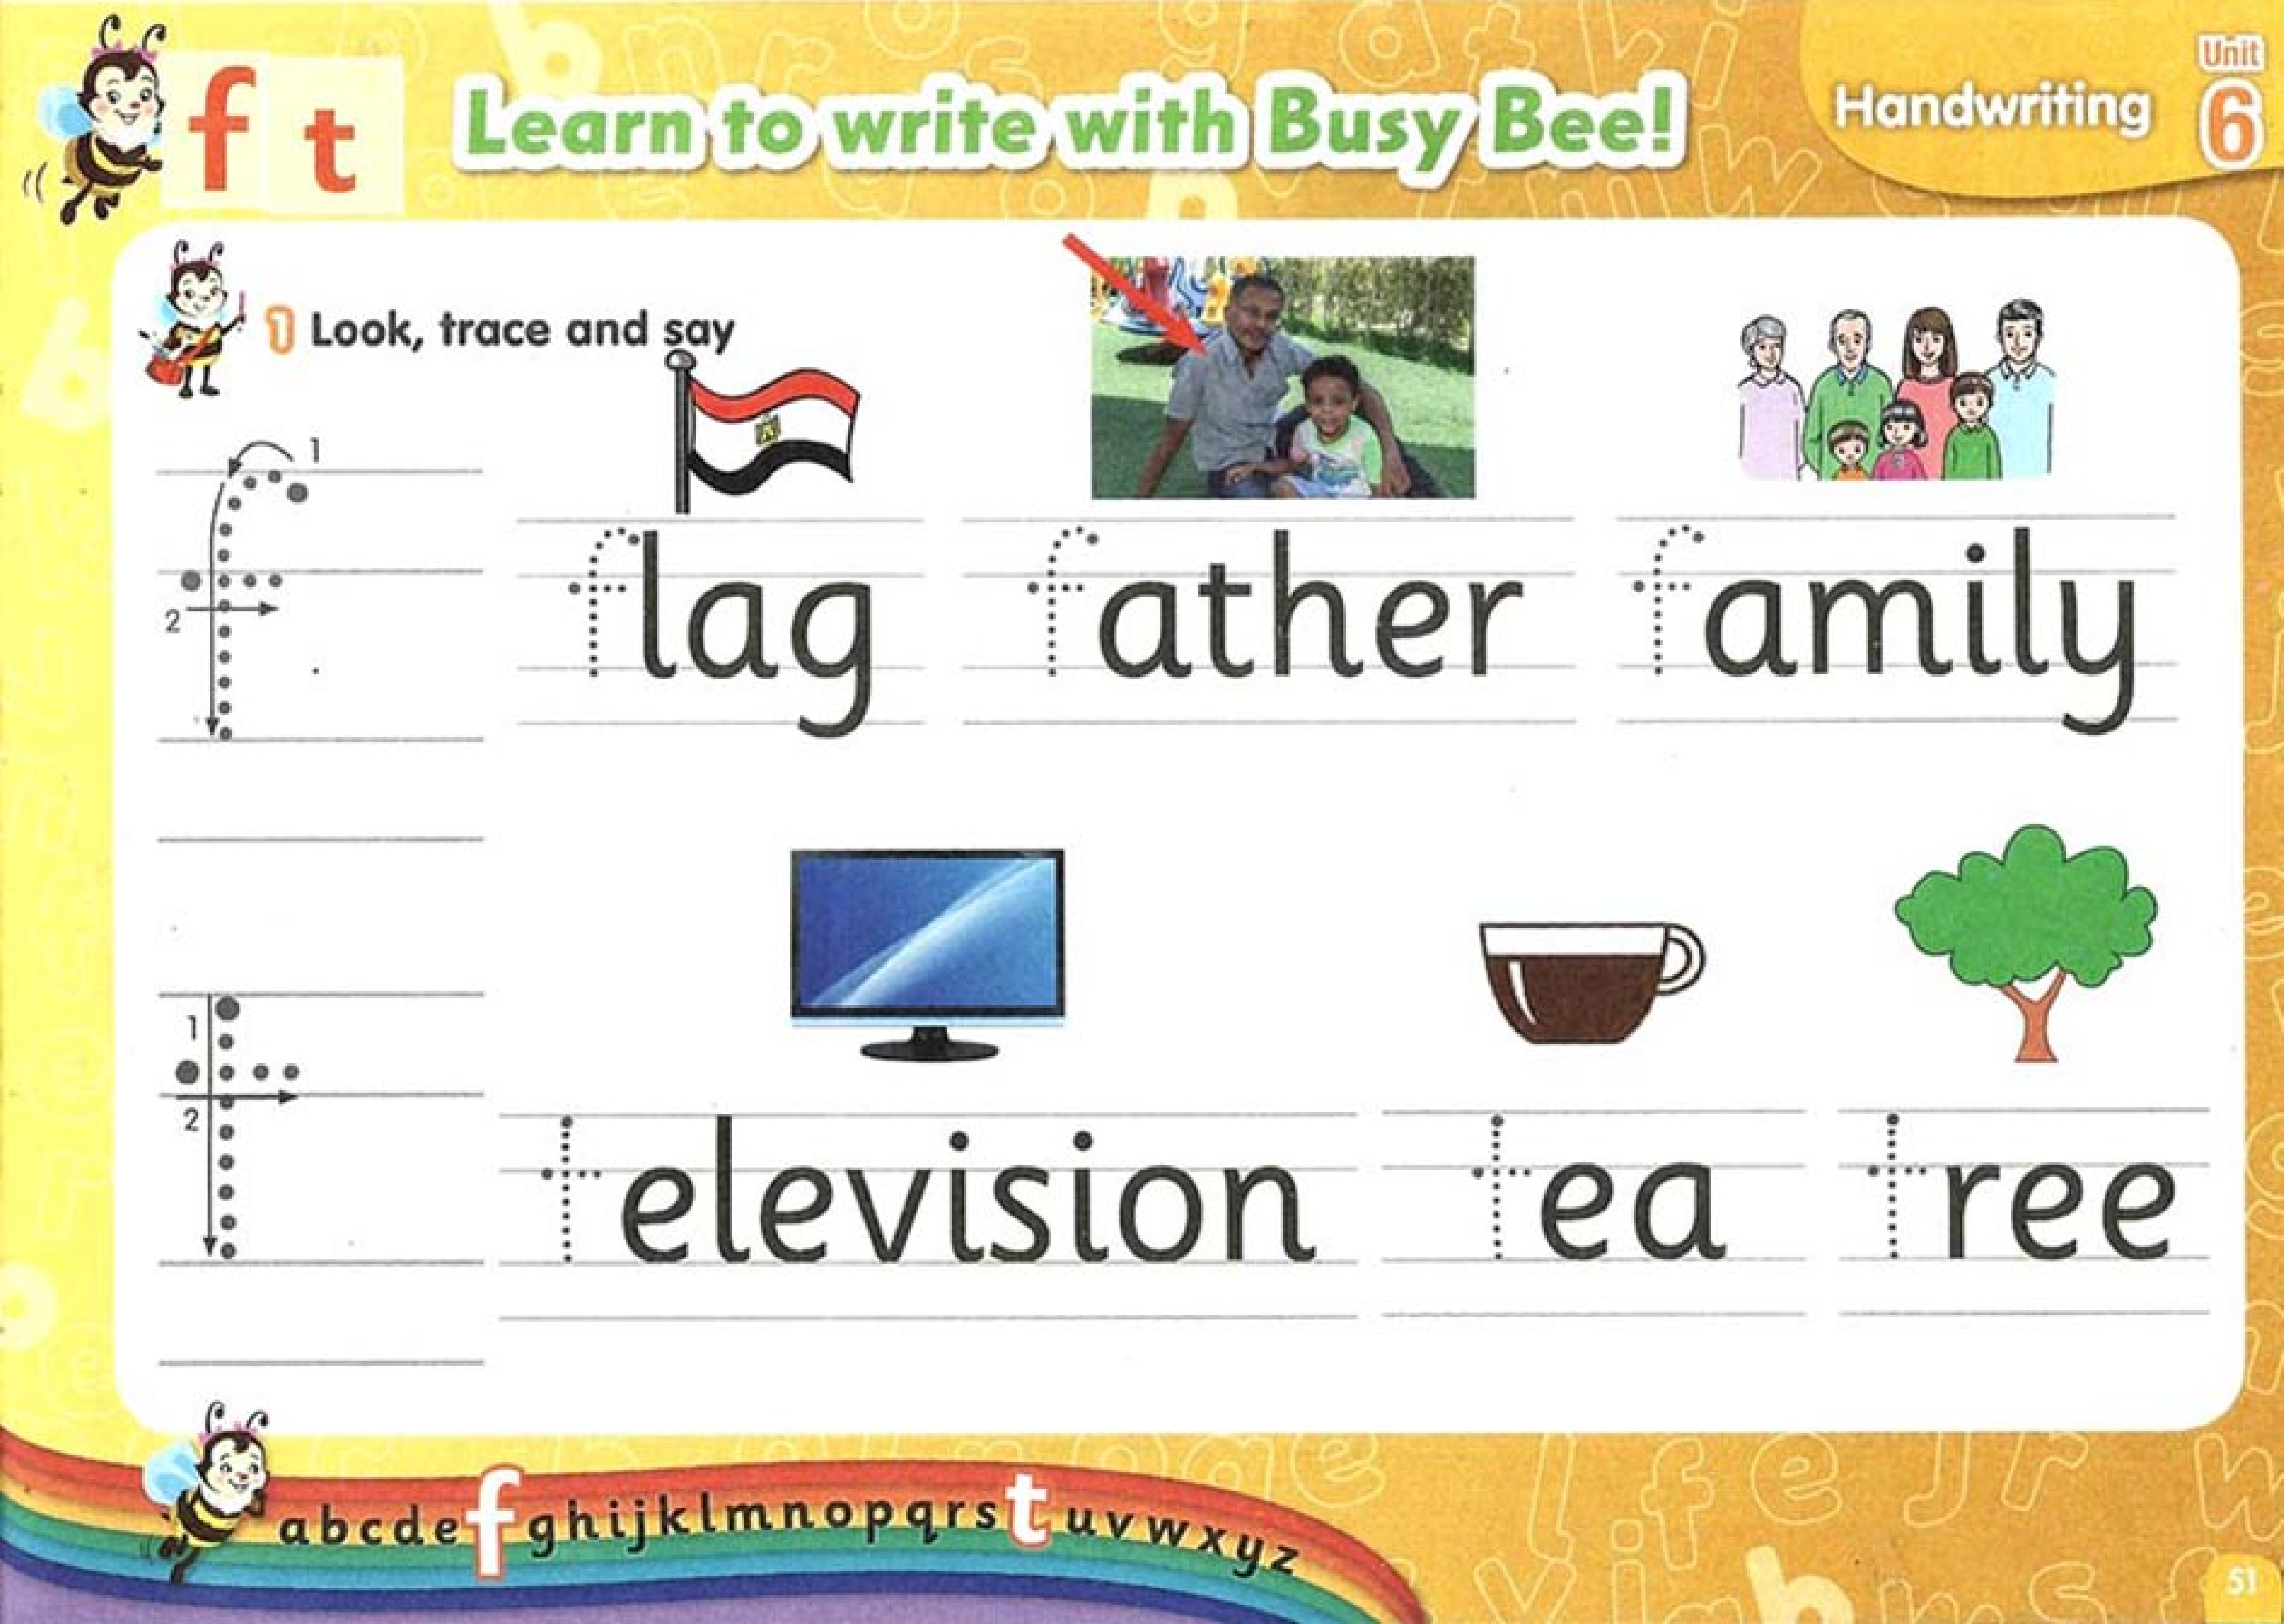 f t
Learn to write with Busy Bee!
Handwriting
Unit
6
1 Look, trace and say
1
2
f
flag
father
family
1
2
t
television
tea
tree
abcdefghijklmnopqrstuvwxyz
51